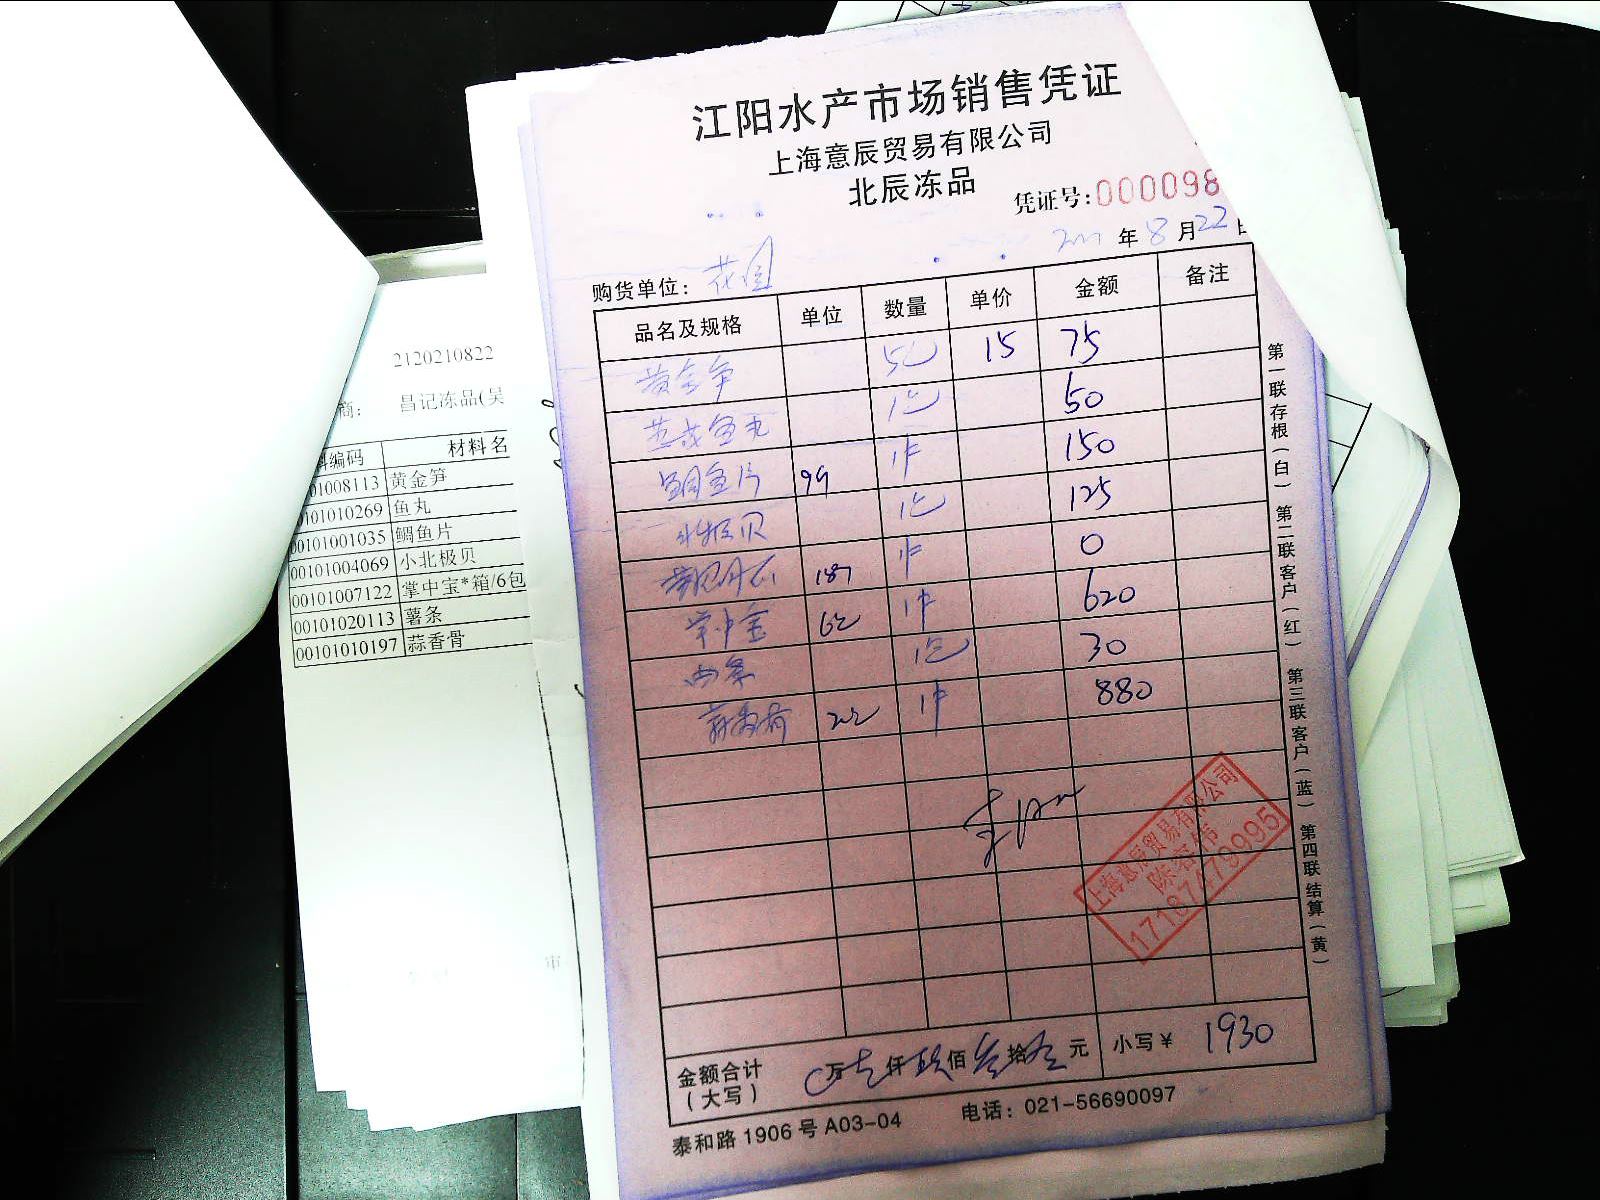 江阳水产市场销售凭证
上海意辰贸易有限公司
北辰冻品
凭证号:000098
年 8 月 22 日
购货单位: 花园
品名及规格 单位 数量 单价 金额 备注
黄金笋 5包 15 75
鱼丸 1包 50
鲷鱼片 99 1件 150
北极贝 1包 125
187 1件 0
掌中宝 6包 1件 620
1包 30
蒜香骨 1件 880
上海意辰贸易有限公司
17187479995
金额合计
(大写)
万 仟 佰 拾 元 小写¥ 1930
泰和路1906号A03-04 电话: 021-56690097
第一联 存根(白) 第二联 客户(红) 第三联 客户(蓝) 第四联 结算(黄)
2120210822
商: 昌记冻品(吴
料编码 材料名
01008113 黄金笋
0101010269 鱼丸
00101001035 鲷鱼片
00101004069 小北极贝
00101007122 掌中宝*箱/6包
00101020113 薯条
00101010197 蒜香骨
审